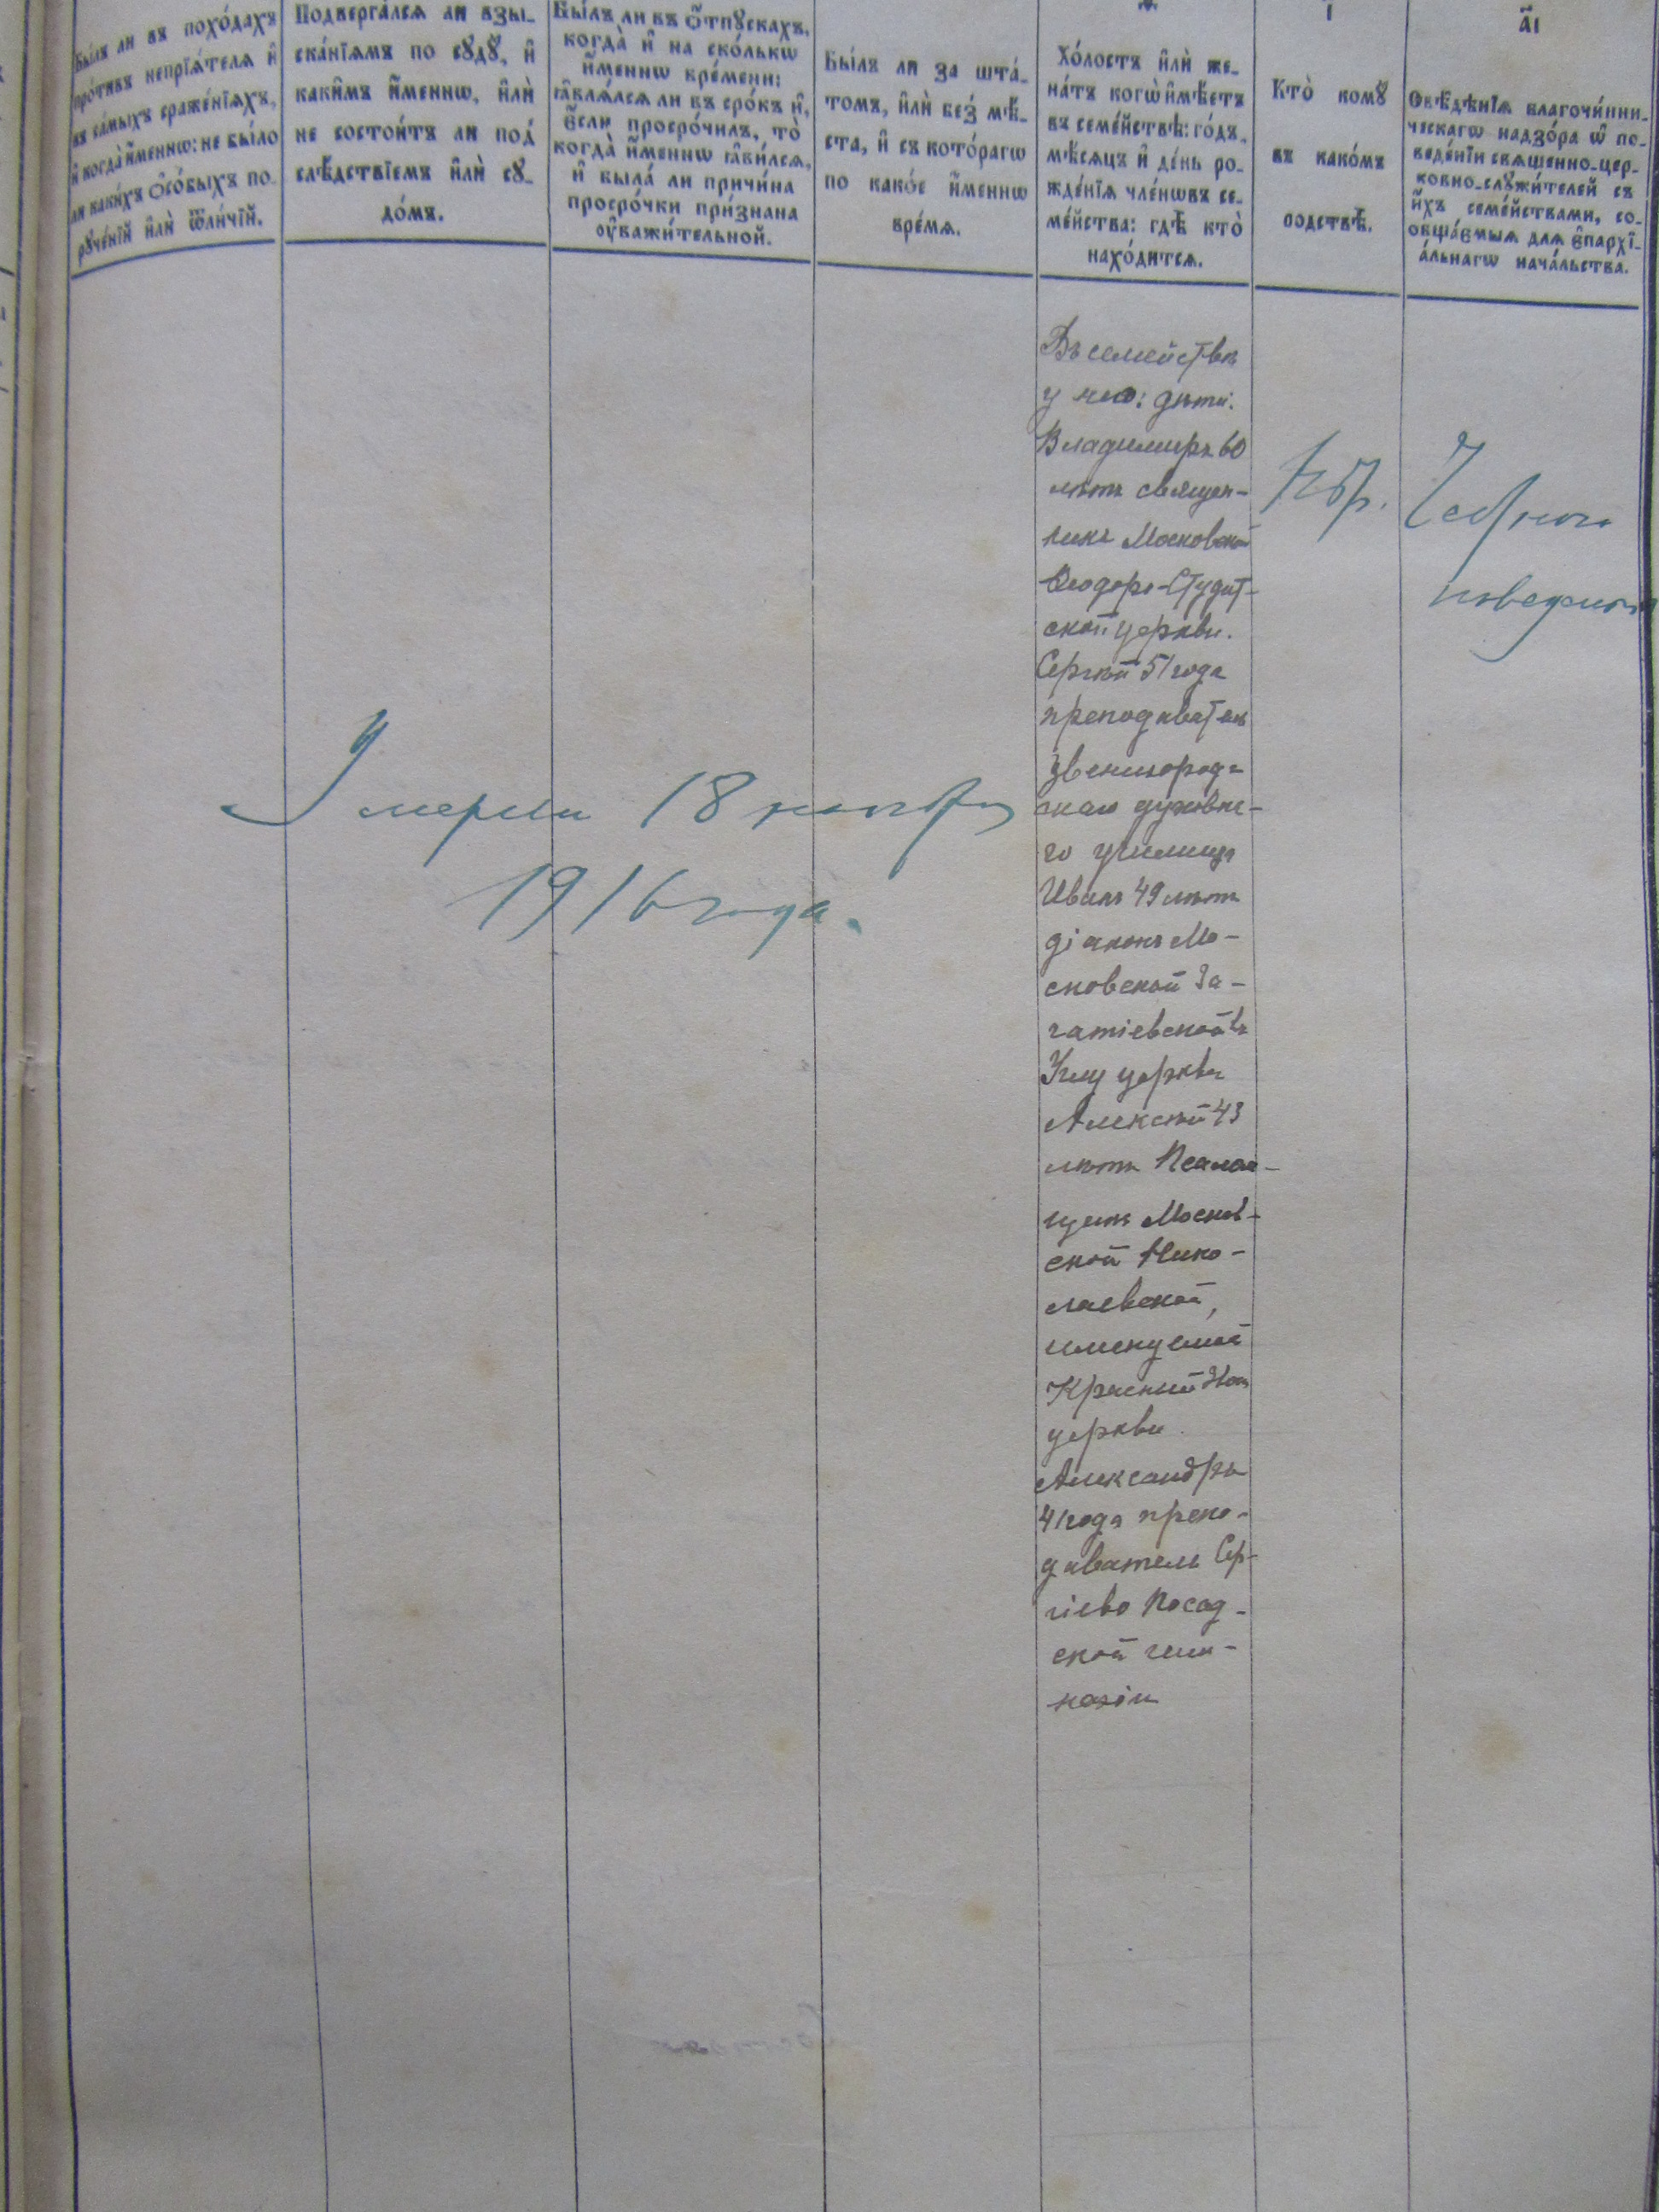 Бы́лъ ли въ похо́дахъ
про́тивъ непрїѧ́телѧ и҆
въ са́мыхъ сраже́нїѧхъ,
и҆ когда̀ и҆́меннѡ: не бы́ло
ли каки́хъ ѻ҆со́быхъ по-
рꙋче́нїй и҆лѝ ѿли́чїй.
Подверга́лсѧ ли взы-
ска́нїѧмъ по сꙋдꙋ̀, и҆
каки̑мъ и҆́меннѡ, и҆лѝ
не состои́тъ ли под̾
слѣ́дствїемъ и҆лѝ сꙋ-
до́мъ.
Бы́лъ ли въ ѿпꙋскахъ,
когда̀ и҆ на ско́лькѡ
и҆́меннѡ вре́мени:
ꙗ҆влѧ́лсѧ ли въ сро́къ и҆,
є҆́сли просро́чилъ, то̀
когда̀ и҆́меннѡ ꙗ҆ви́лсѧ,
и҆ была́ ли причи́на
просро́чки при́знана
ᲂу҆важи́тельной.
Бы́лъ ли за шта́-
томъ, и҆лѝ без̾ мѣ́-
ста, и҆ съ кото́рагѡ
по како́е и҆́меннѡ
вре́мѧ.
Хо́лостъ и҆лѝ же-
на́тъ когѡ̀ и҆мѣ́етъ
въ семе́йствѣ: го́дъ,
мѣ́сѧцъ и҆ де́нь ро-
жде́нїѧ чле́нѡвъ се-
ме́йства: гдѣ̀ кто̀
нахо́дитсѧ.
ї
Кто̀ комꙋ̀
въ како́мъ
родствѣ̀.
а҃і
Свѣ́дѣнїѧ благочи́нни-
ческагѡ надзо́ра ѡ҆ по-
веде́нїи свѧще́нно-цер-
ковно-слꙋжи́телей съ
и҆́хъ семе́йствами, со-
обща́ємыѧ для є҆пархї-
а́льнагѡ нача́льства.
Въ семействѣ
у него: дѣти:
Владимиръ 60
лѣтъ священ-
никъ Московской
Ѳеодоро-Студит-
ской церкви.
Сергѣй 51 года
преподаватель
Звенигород-
скаго духовна-
го училища
Иванъ 49 лѣтъ
діаконъ Мо-
сковской За-
чатіевской въ
Углу церкви
Алексѣй 43
лѣтъ Псалом-
щикъ Москов-
ской Нико-
лаевской,
именуемой
Красный Звон
церкви
Александръ
41 года препо-
даватель Сер-
гіево Посад-
ской гим-
назіи
Честнаго
поведенія
Умерши 18 ноября
1916 года.